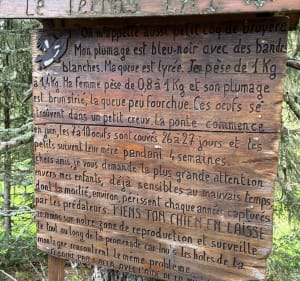 On m'appelle aussi petit coq de bruyère
Mon plumage est bleu-noir avec des bandes
blanches. Ma queue est lyrée. Je pèse de 1 Kg
à 1,4 Kg. Ma femme pèse de 0,8 à 1 Kg et son plumage
est brun strié, la queue peu fourchue. Les œufs se
trouvent dans un petit creux, la ponte commence
en juin, les 7 à 10 œufs sont couvés 26 à 27 jours et les
petits suivent leur mère pendant 4 semaines.
chers amis, je vous demande la plus grande attention
envers mes enfants, déjà sensibles au mauvais temps,
dont la moitié, environ, périssent chaque année capturés
par les prédateurs. TIENS TON CHIEN EN LAISSE
sur notre zone de reproduction et surveille
le tout au long de la promenade car tous les hôtes de la
montagne rencontrent le même problème